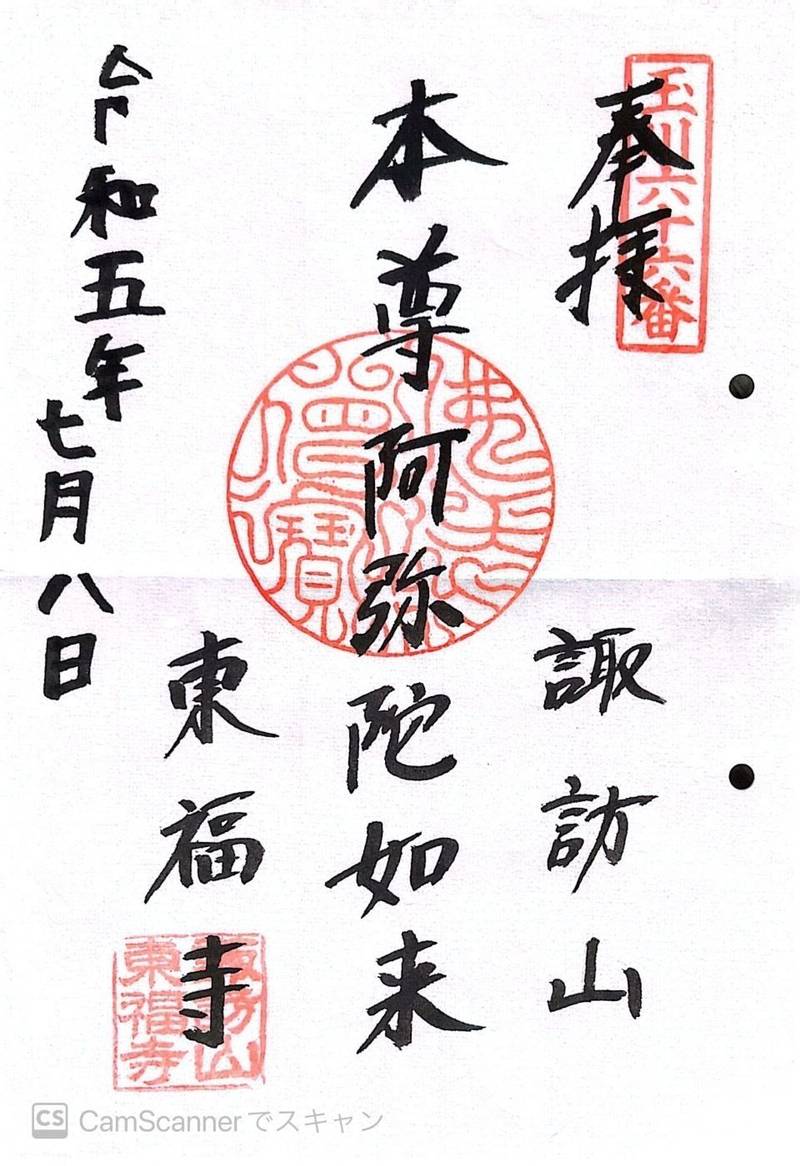 玉川六十六番
奉拝
諏訪山
本尊阿弥陀如来
佛法僧寳
東福寺
諏訪山
東福寺
令和五年
七月八日
CS CamScannerでスキャン